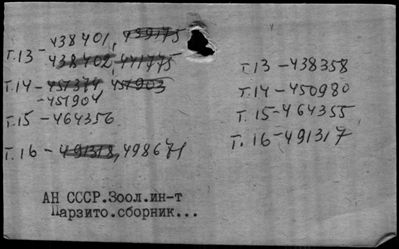 438401, 439175
т.13 - 438402, 441775
т.14 - 451374 451903
- 451904
т.15 - 464356
т.16 - 491318, 498671
т.13 - 438358
т.14 - 450980
т.15 - 464355
т.16 - 491317
АН СССР.Зоол.ин-т
Парзито.сборник...